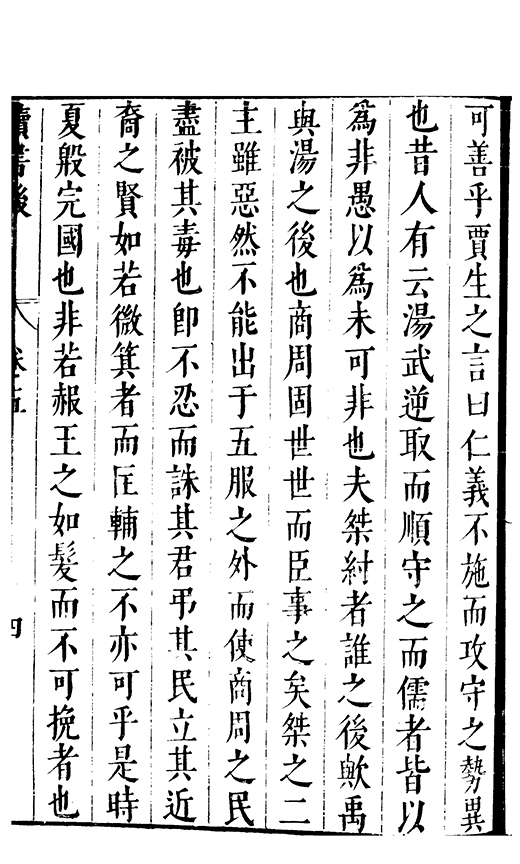 可善乎賈生之言曰仁義不施而攻守之勢異
也昔人有云湯武逆取而順守之而儒者皆以
為非愚以為未可非也夫桀紂者誰之後歟禹
與湯之後也商周固世世而臣事之矣桀之二
主雖惡然不能出于五服之外而使商周之民
盡被其毒也卽不忍而誅其君弔其民立其近
裔之賢如若微箕者而匡輔之不亦可乎是時
夏殷完國也非若赧王之如髮而不可挽者也
讀書後
四